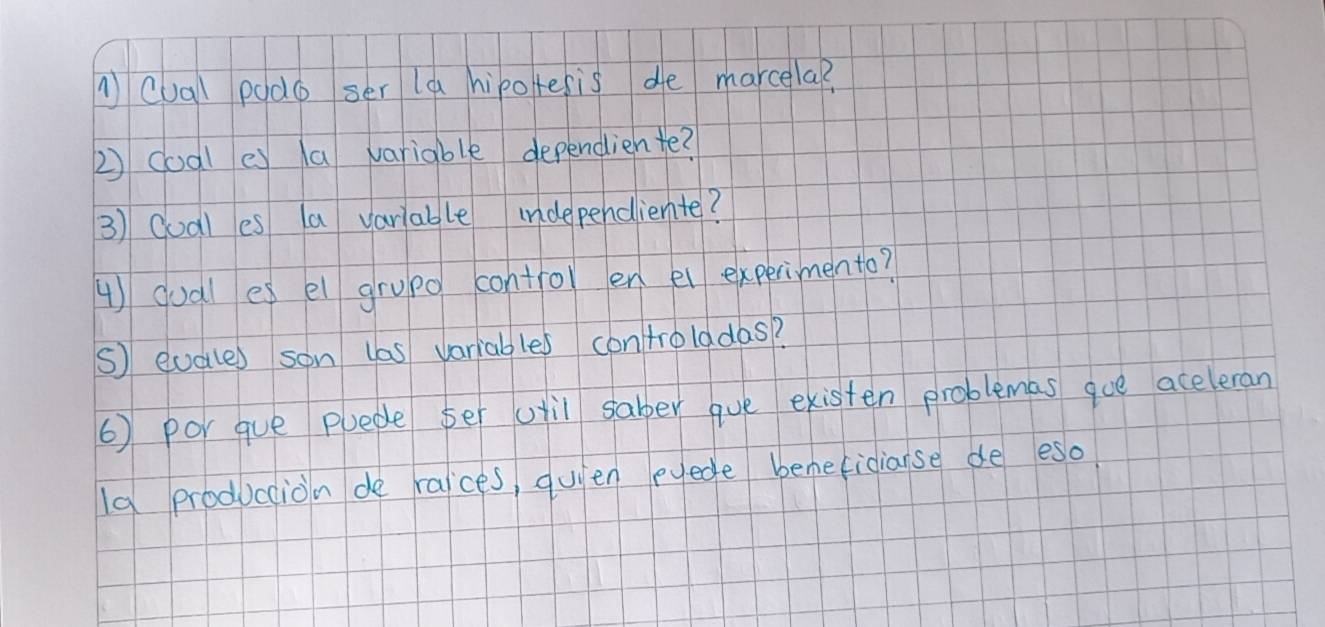 1) Cual pudo ser la hipotesis de marcela?
2) cual es la variable dependiente?
3) Cual es la variable independiente?
4) cual es el grupo control en el experimento?
5) cuales son las variables controladas?
6) por que puede ser util saber que existen problemas que aceleran
la producción de raices, quien puede beneficiarse de eso.